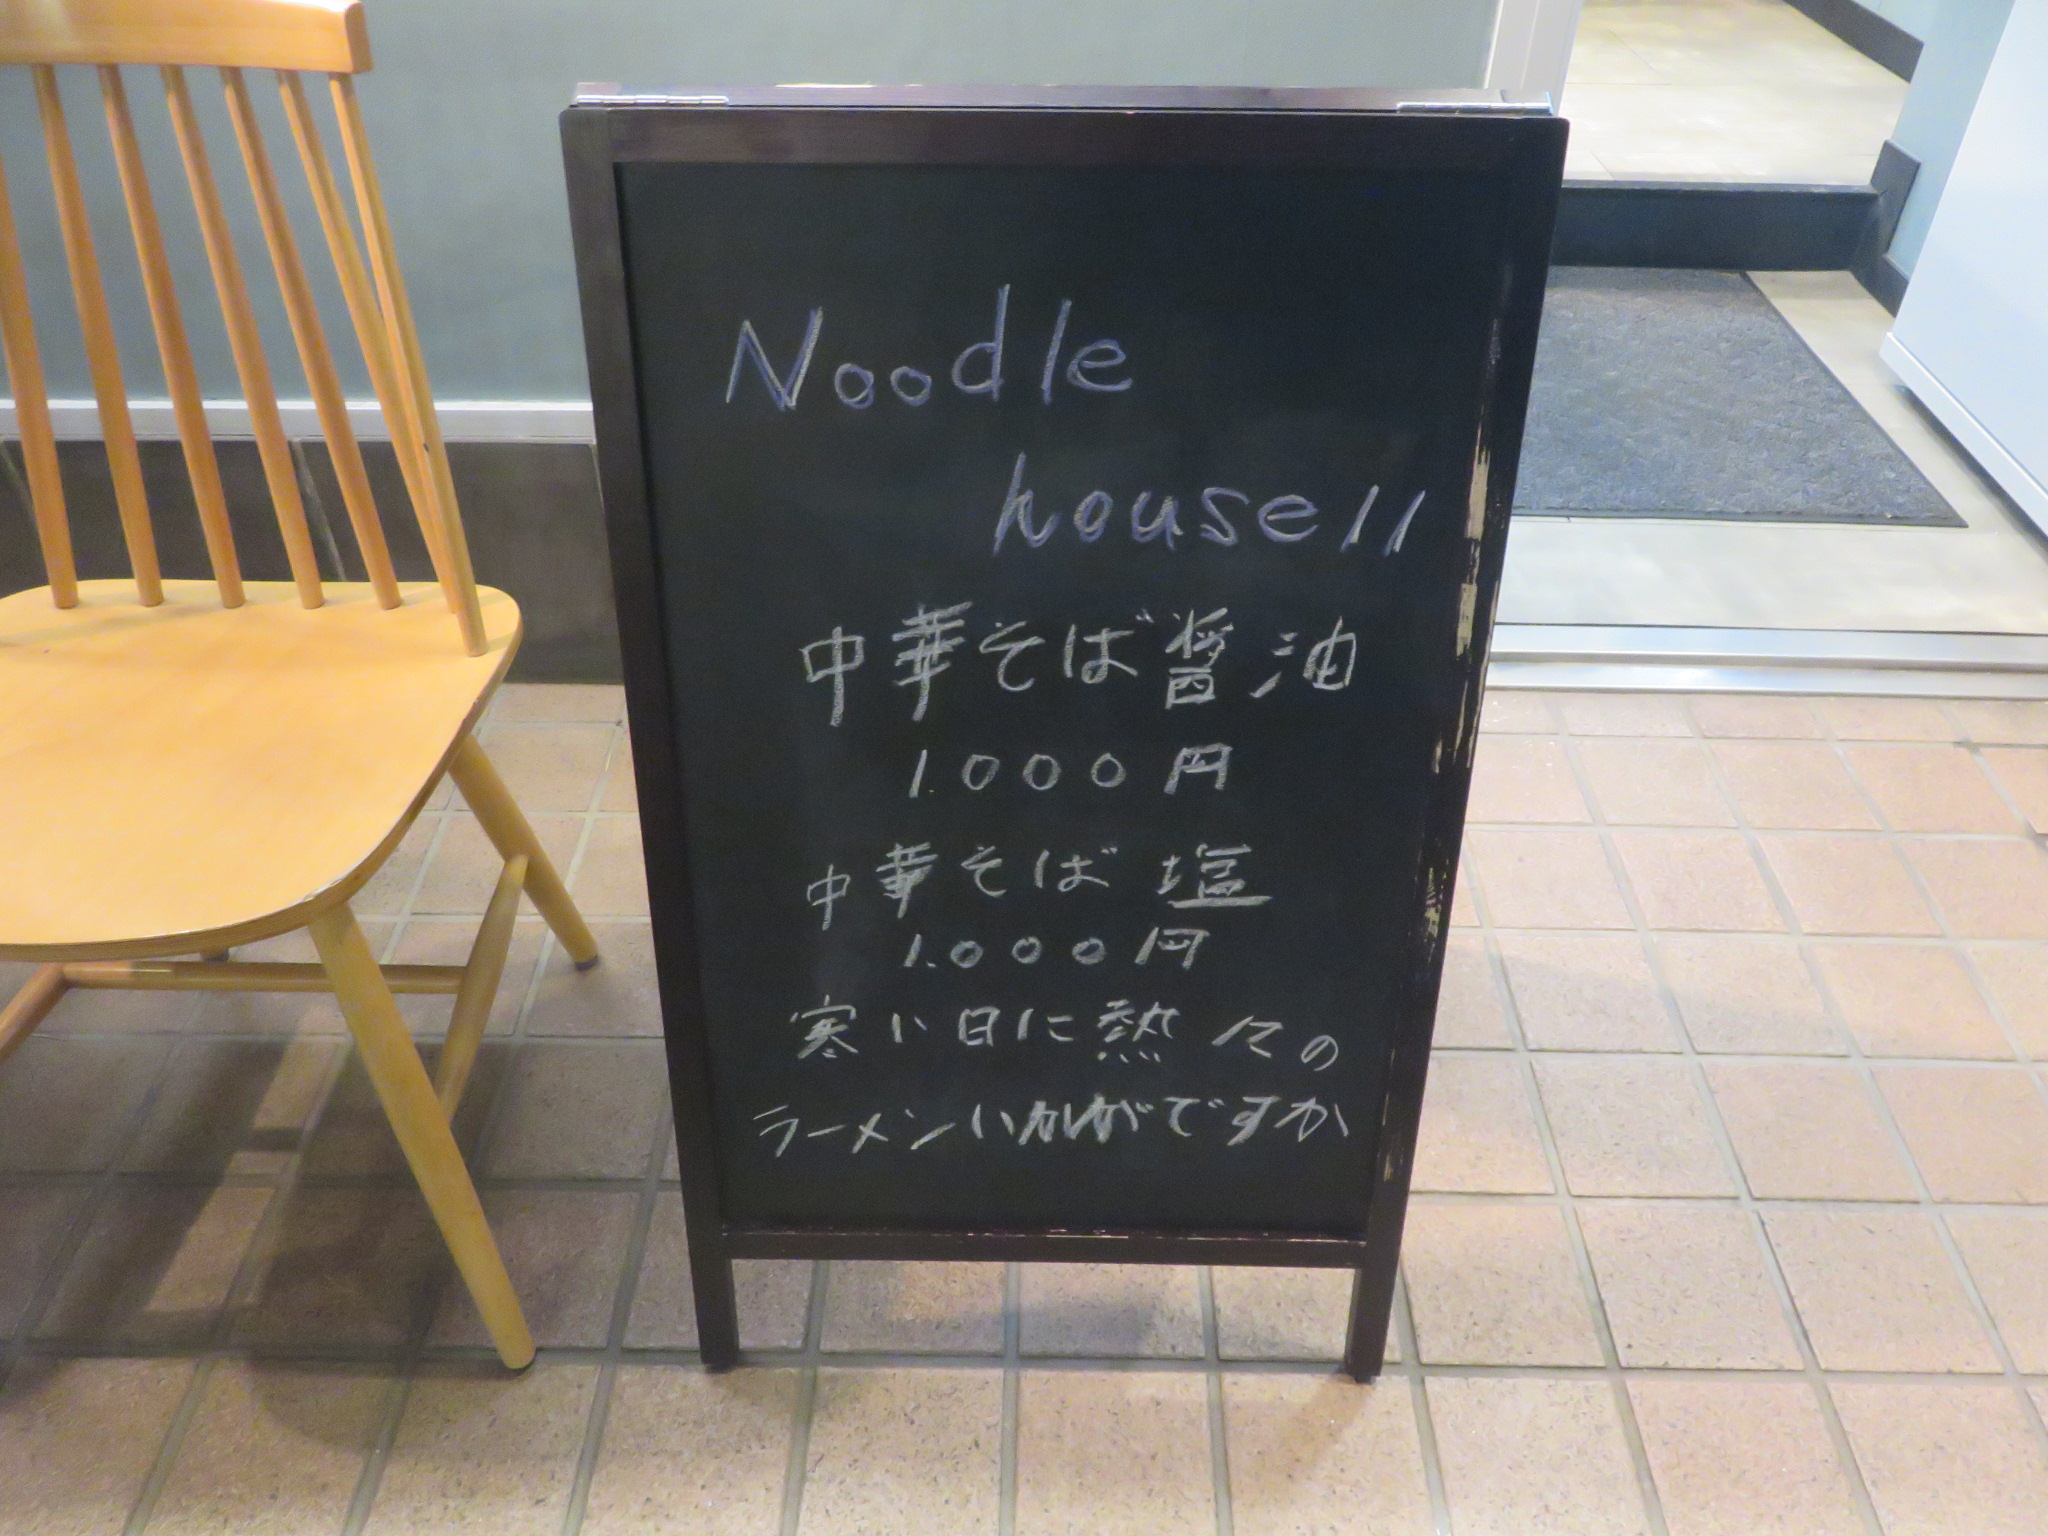 Noodle
house 11
中華そば醤油
1.000円
中華そば 塩
1.000円
寒い日に熱々の
ラーメンいかがですか